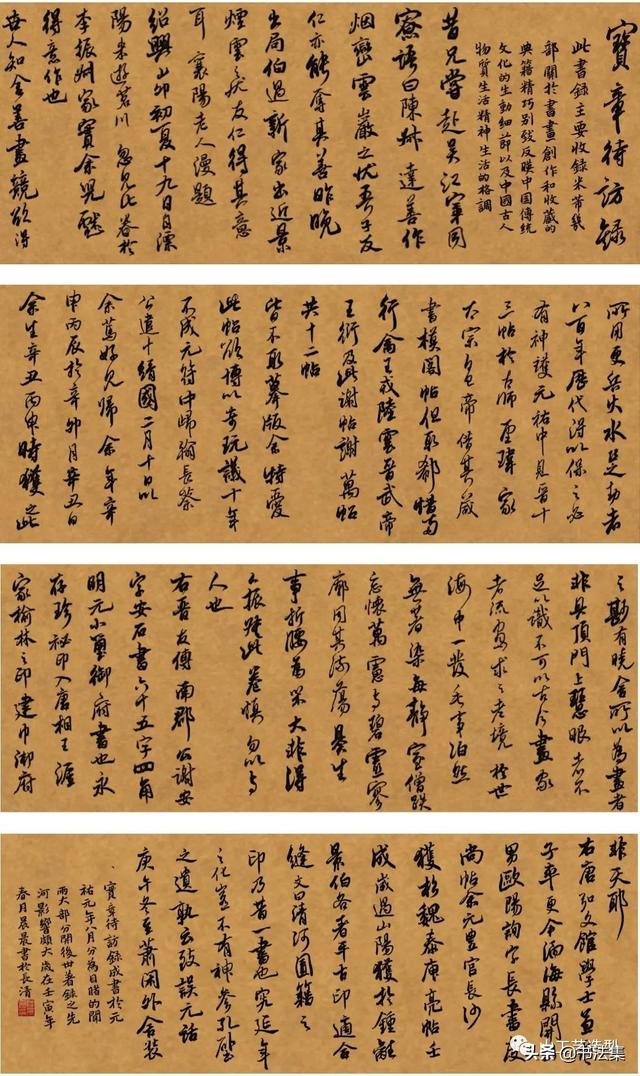 寶章待訪錄
此書錄主要收錄米芾幾
部關於書畫創作和收藏的
典籍精巧別致反映中国傳統
文化的生動細節以及中國古人
物質生活精神生活的格調
昔兄嘗赴吴江宰同
寮語曰陳 達善作
烟巒雲巖之 吾子友
仁亦能奪其善昨晚
出局伯過新家出近景
煙雲之 友仁得其意
耳襄陽老人漫題
紹興 卯初夏十九日自溧
陽来遊苕川忽見此卷於
李振州家實余兒戲
得意作也
世人知余善畫競欲得
所用更兵火水足劫者
八百年歷代得以保之必
有神護元祐中見晉十
三帖於太師李瑋家
太宗皇帝借其藏
書模閣帖但取郗愔兩
行 王戎陸雲晉武帝
王衍及此謝帖謝萬帖
共十二帖
皆不取摹版余特愛
此帖欲博以奇玩議十年
不成元符中歸翰長蔡
公遺十靖國二月十日以
余篤好見歸余年辛
申丙辰於辛卯月辛丑日
余生辛丑丙申時獲之此
之勘有曉余所以為畫者
非具頂門上慧眼者不
足以識不可以古今畫家
者流畫求之老境於世
海中一發毛事泊然
無著染每靜室僧趺
忘懷萬慮与碧虛寥
廓同其流蕩 生
事折腰為米大非得
之振 此卷慎勿以与
人也
右晉太傅南郡公謝安
字安石書六十五字四角
明元小璽御府書也永
存珍祕印入唐相王涯
家榆林之印建巾御府
非天耶
右唐弘文館學士
子率更令渤海縣開
男歐陽詢字長書度
尚帖余元豊官長沙
獲於魏泰庾亮帖壬
戌歲過山陽獲於鍾離
景伯各着平古印適合
縫文曰清河圖籍之
印乃昔一書也究延年
之化豈不有神參孔壁
之遺孰云致誤元祐
庚午冬至蕭閑外舍装
寶章待訪錄成書於元
祐元年八月分為目睹的聞
兩大部分開後世著錄之先
河影響頗大歲在壬寅年
春月晨晨書於長清
工艺造型
头条 @书法集